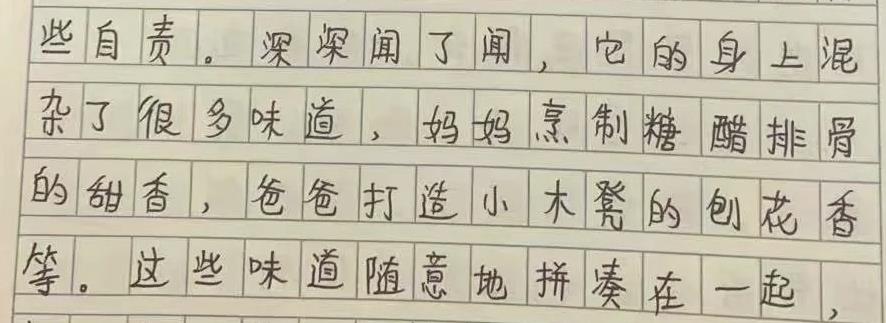 些自责。深深闻了闻，它的身上混
杂了很多味道，妈妈烹制糖醋排骨
的甜香，爸爸打造小木凳的刨花香
等。这些味道随意地拼凑在一起，